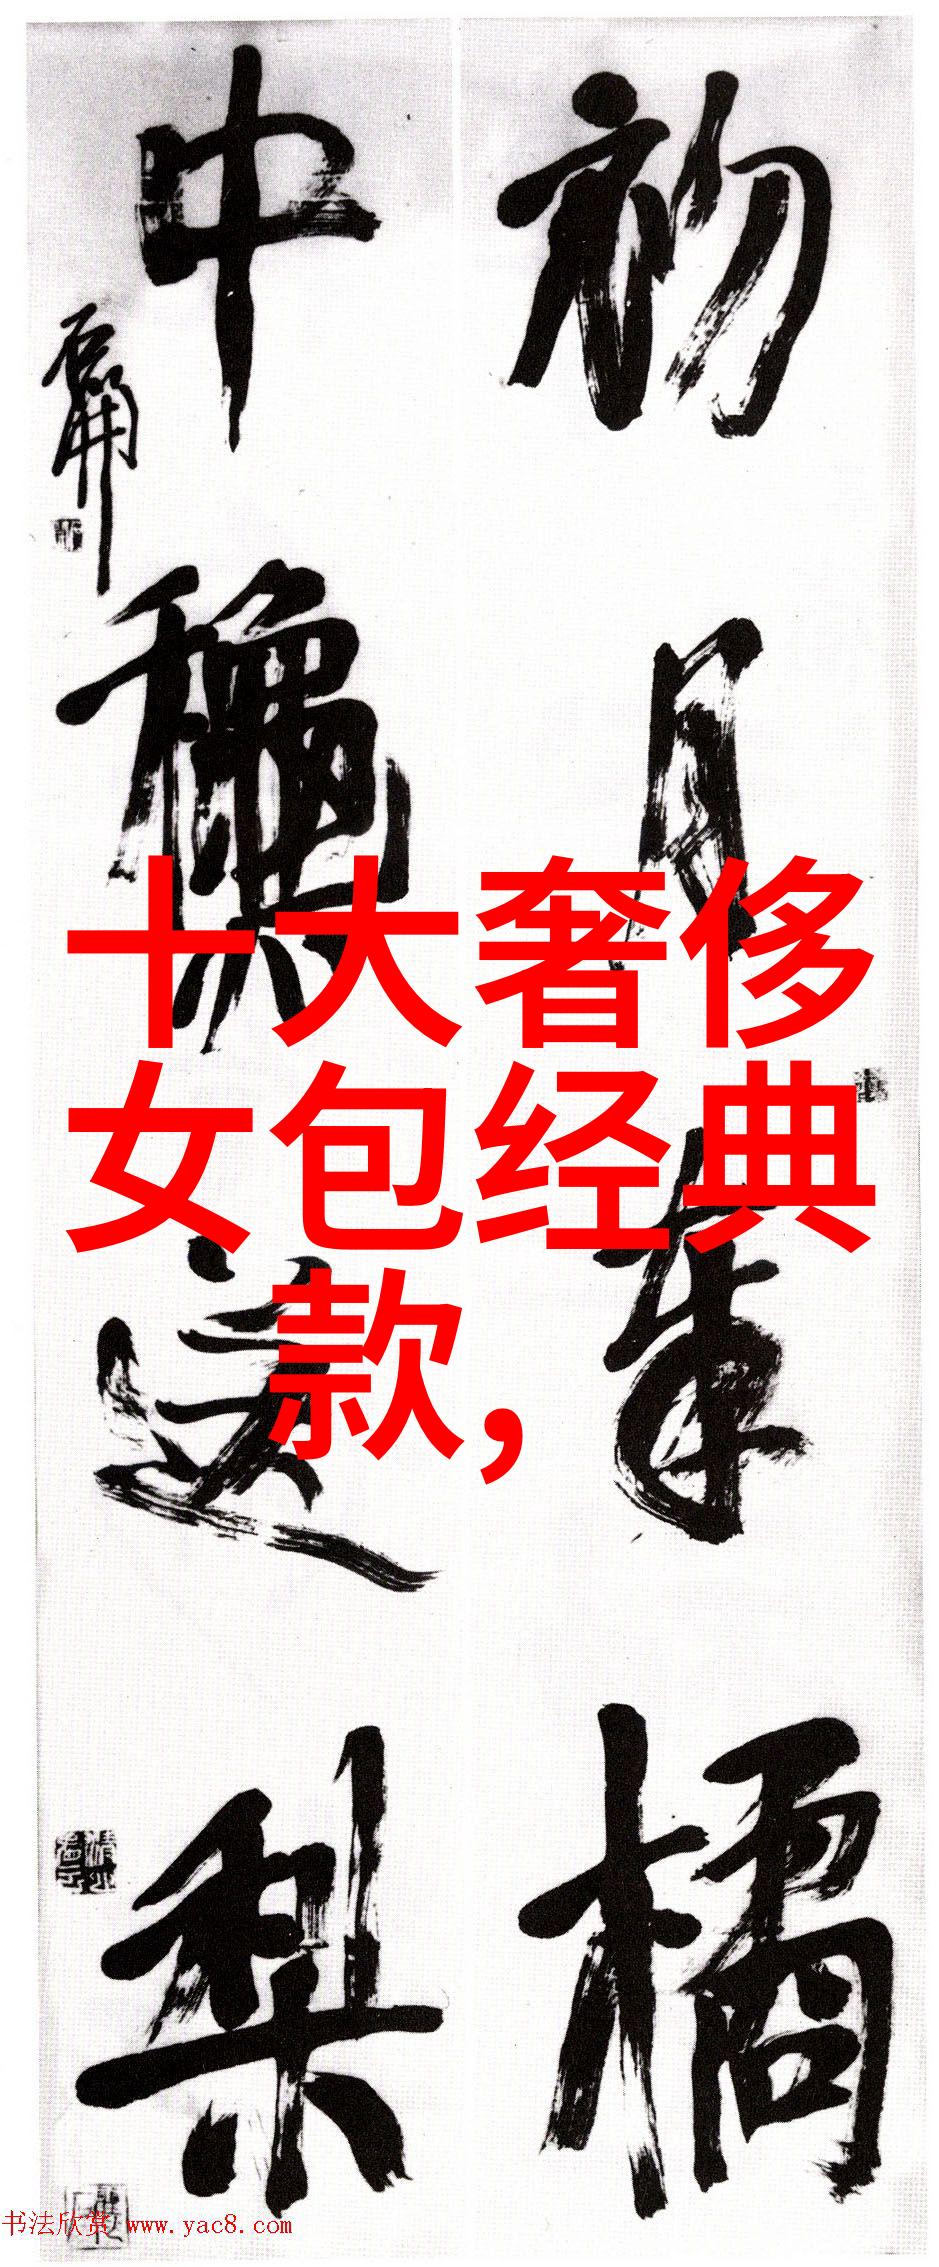 初月奉橘
中龝送梨
石庵
十大奢侈
女包经典
款，
书法欣赏 www.yac8.com